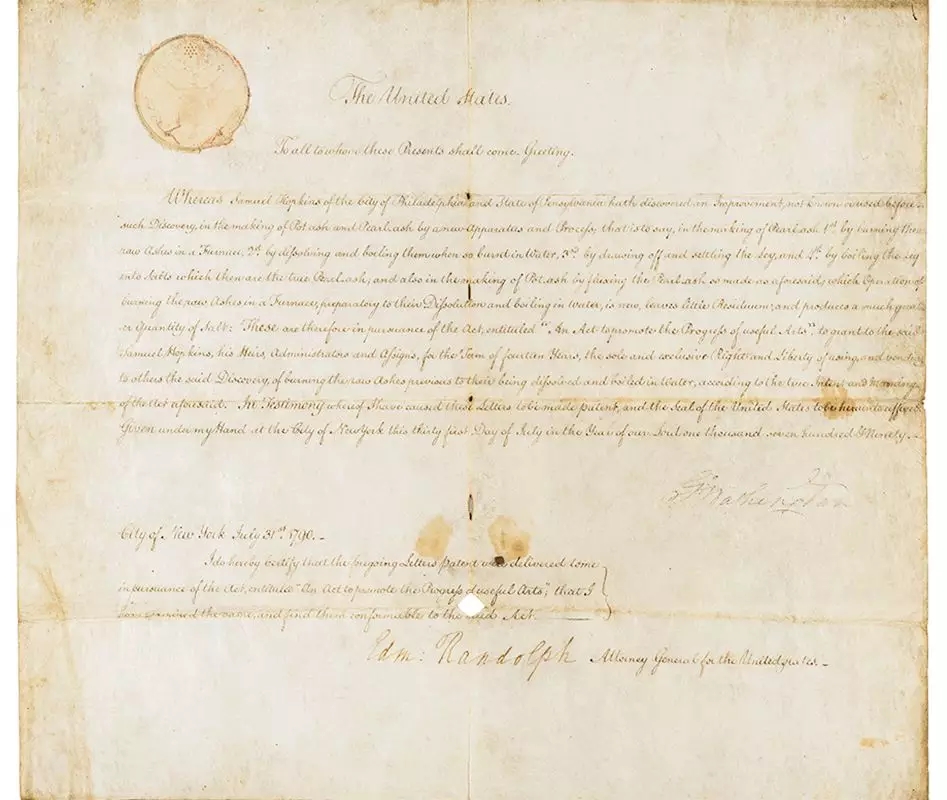 The United States.
To all to whom these Presents shall come. Greeting.
Whereas Samuel Hopkins of the City of Philadelphia and State of Pensylvania hath discovered an Improvement, not known or used before
such Discovery, in the making of Pot ash and Pearl ash by a new Apparatus and Process; that is to say, in the making of Pearl ash 1st. by burning the
raw Ashes in a Furnace, 2d. by dissolving and boiling them when so burnt in Water, 3rd. by drawing off and settling the Ley, and 4th. by boiling the Ley
into Salts which then are the true Pearl ash; and also in the making of Pot ash by fluxing the Pearl ash so made as aforesaid; which Operation of
burning the raw Ashes in a Furnace, preparatory to their Dissolution and boiling in Water, is new, leaves little Residuum; and produces a much great
er Quantity of Salt: These are therefore in pursuance of the Act, entituled "An Act to promote the Progress of useful Arts", to grant to the said
Samuel Hopkins, his Heirs, Administrators and Assigns, for the Term of fourteen Years, the sole and exclusive Right and Liberty of using, and vending
to others the said Discovery, of burning the raw Ashes previous to their being dissolved and boiled in Water, according to the true Intent and Meaning
of the Act aforesaid. In Testimony whereof I have caused these Letters to be made patent, and the Seal of the United States to be hereunto affixed
Given under my Hand at the City of New York this thirty first Day of July in the Year of our Lord one thousand seven hundred & Ninety.
G Washington
City of New York July 31st. 1790. -
I do hereby Certify that the foregoing Letters patent were delivered to me
in pursuance of the Act, entituled "An Act to promote the Progress of useful Arts"; that I
have examined the same, and find them conformable to the said Act.
Edm: Randolph Attorney General for the United States. -